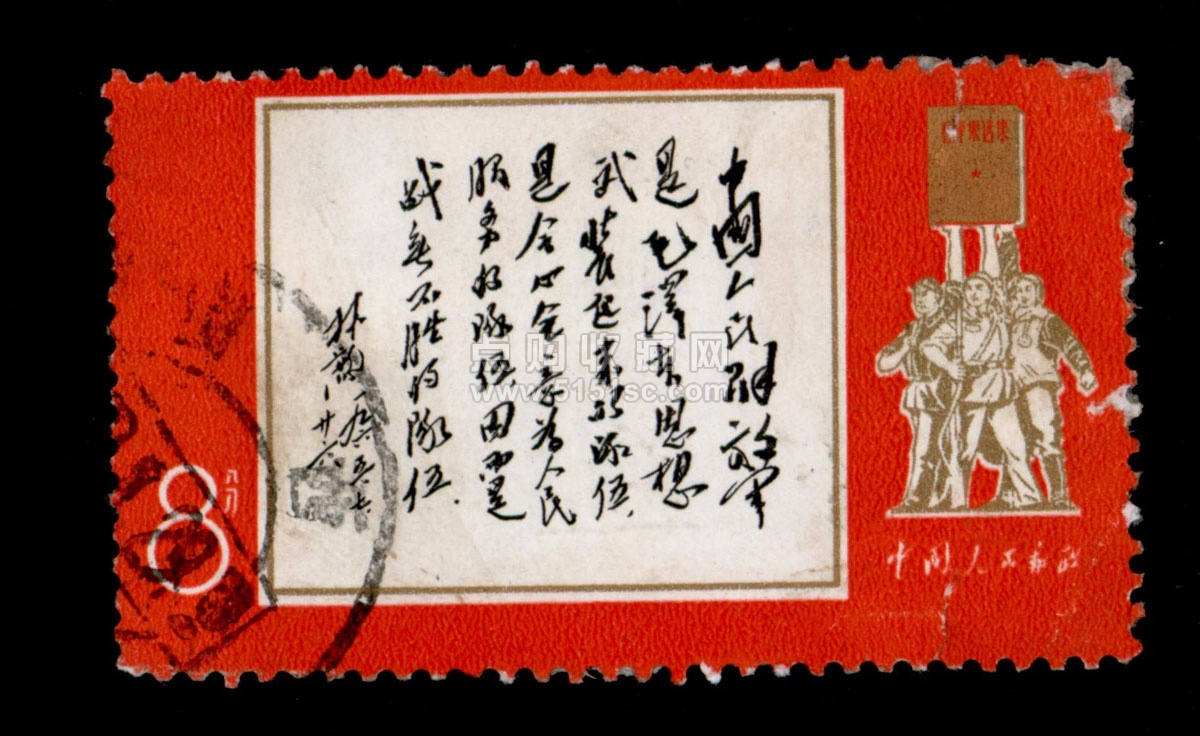 中國人民解放军
是毛澤东思想
武裝起来的隊伍,
是全心全意为人民
服务的隊伍,因而是
战无不胜的隊伍.
林彪 一九六五、七、
廿六
毛泽东选集
中国人民邮政
8
八分
点购收藏网
www.5151sc.com